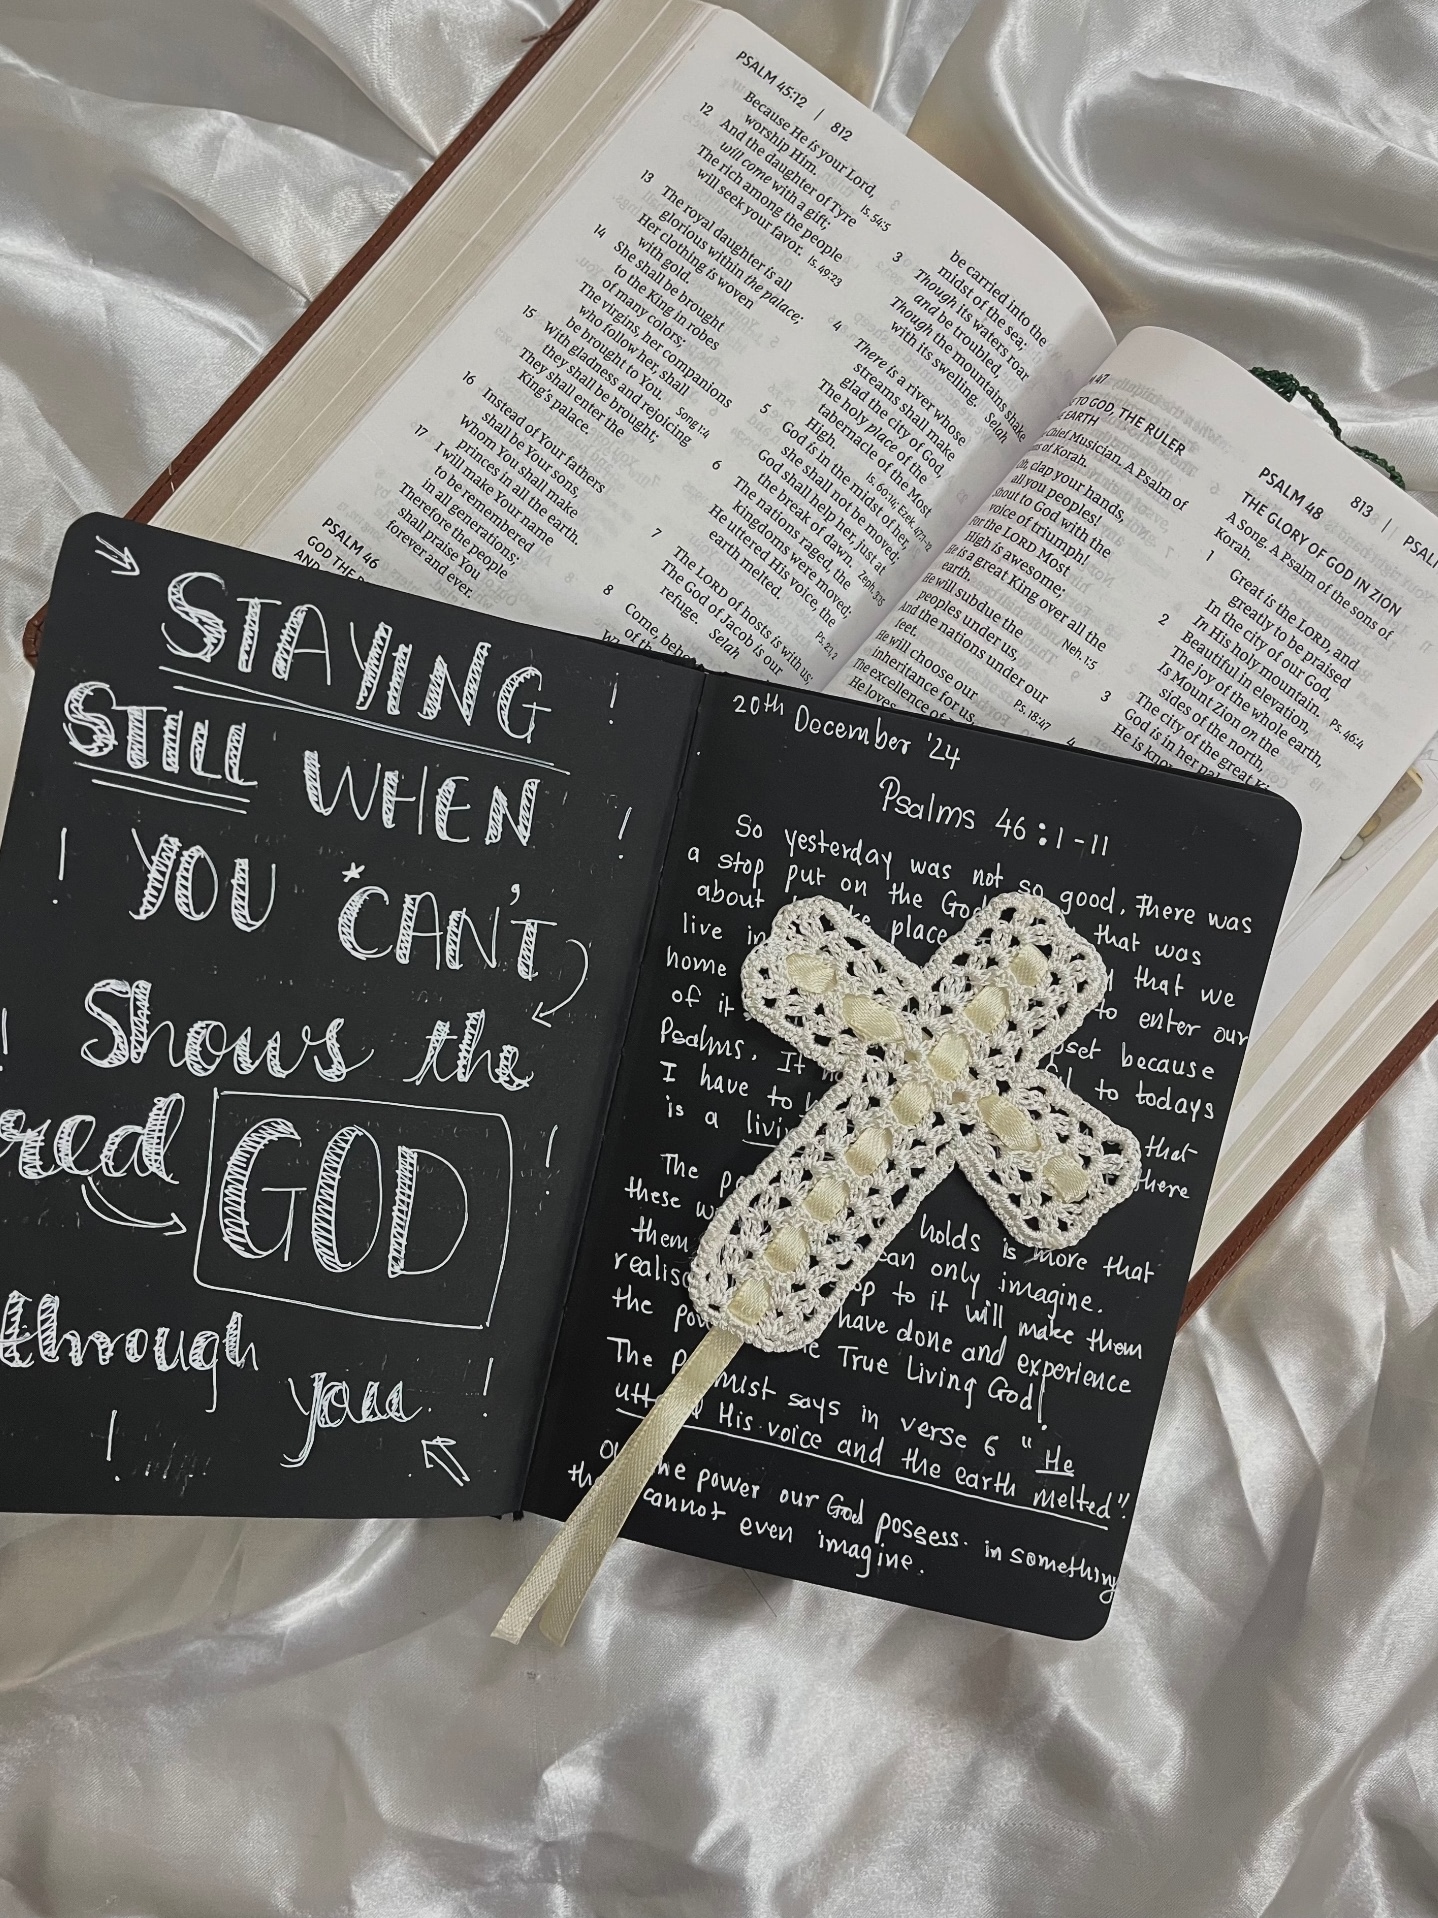 PSALM 45:12 | 812
Because He is your Lord,
worship Him.
12 And the daughter of Tyre
will come with a gift;
The rich among the people
will seek your favor. Is. 49:23
Is. 54:5
13 The royal daughter is all
glorious within the palace;
Her clothing is woven
with gold.
14 She shall be brought
to the King in robes
of many colors;
The virgins, her companions
who follow her, shall
be brought to You. Song 1:4
15 With gladness and rejoicing
they shall be brought;
They shall enter the
King's palace.
16 Instead of Your fathers
shall be Your sons,
Whom You shall make
princes in all the earth.
17 I will make Your name
to be remembered
in all generations;
Therefore the people
shall praise You
forever and ever.
PSALM 46
GOD THE
AND
be carried into the
midst of the sea;
3 Though its waters roar
and be troubled,
Though the mountains shake
with its swelling. Selah
4 There is a river whose
streams shall make
glad the city of God,
The holy place of the
tabernacle of the Most
High. Is. 60:14; Ezek. 47:1-12
5 God is in the midst of her,
she shall not be moved;
God shall help her, just at
the break of dawn. Zeph. 3:15
6 The nations raged, the
kingdoms were moved;
He uttered His voice, the
earth melted. Ps. 2:1, 2
7 The LORD of hosts is with us;
The God of Jacob is our
refuge. Selah
8 Come,
of the
47
TO GOD, THE RULER
EARTH
Chief Musician. A Psalm of
of Korah.
Oh, clap your hands,
all you peoples!
Shout to God with the
voice of triumph!
For the LORD Most
High is awesome;
He is a great King over all the
earth.
He will subdue the
peoples under us,
And the nations under our
feet. Neh. 1:5
He will choose our
inheritance for us,
The excellence of
He loves. Ps. 18:47
PSALM 48
813 |
THE GLORY OF GOD IN ZION
A Song. A Psalm of the sons of
Korah.
1 Great is the LORD, and
greatly to be praised
In the city of our God,
In His holy mountain.
2 Beautiful in elevation,
The joy of the whole earth,
Is Mount Zion on the
sides of the north,
The city of the great
Ps. 46:4
3 God is in her
He is
4
STAYING !
STILL WHEN !
! YOU *CAN'T
! Shows the
red GOD !
through
you !
!
20th December '24
Psalms 46:1-11
So yesterday was not so good. There was
a stop put on the God that was
about place that we
live in to enter our
home because
of it to todays
Psalms. It
I have to that
is a there
The
these w holds is more that
them can only imagine.
to it will make them
the have done and experience
True Living God!
The says in verse 6 "He
His voice and the earth melted".
power our God possess. in something
cannot even imagine.